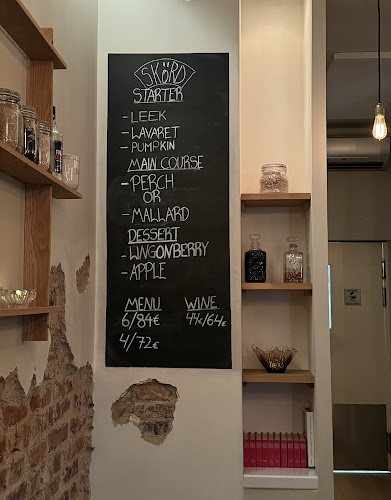 SKÖRD
STARTER
- LEEK
- LAVARET
- PUMPKIN
MAIN COURSE
- PERCH
OR
- MALLARD
DESSERT
- LINGONBERRY
- APPLE
MENU WINE
6/84€ 44€/64€
4/72€